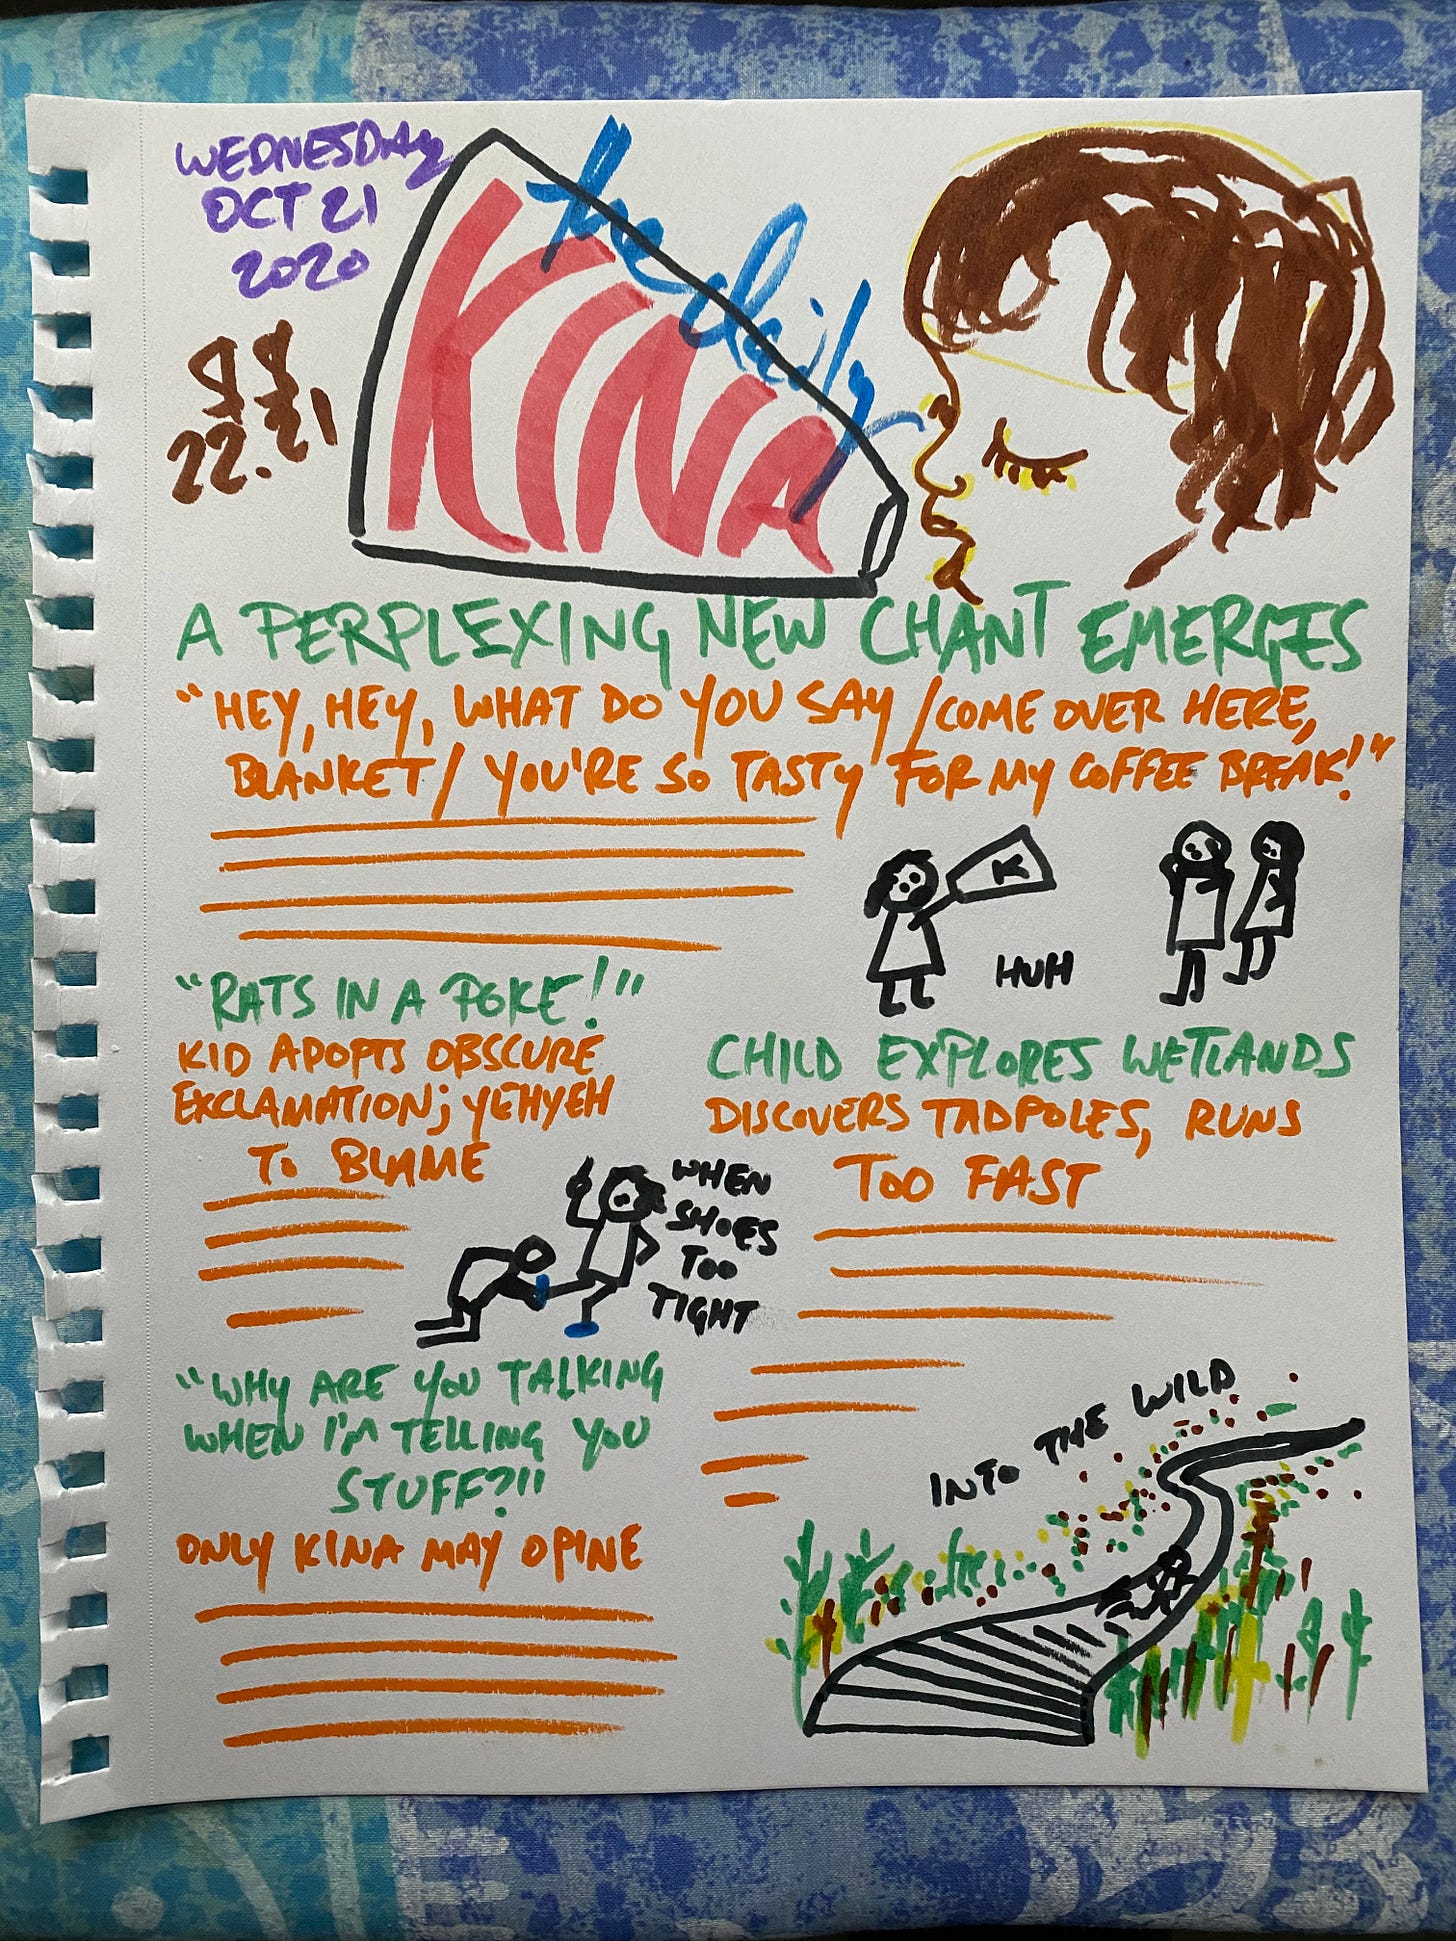 WEDNESDAY
OCT 21
2020
the daily
KINA
22. 21
A PERPLEXING NEW CHANT EMERGES
"HEY, HEY, WHAT DO YOU SAY / COME OVER HERE,
BLANKET / YOU'RE SO TASTY FOR MY COFFEE BREAK!"
K
HUH
"RATS IN A POKE!"
KID ADOPTS OBSCURE
EXCLAMATION; YEHYEH
TO BLAME
WHEN
SHOES
TOO
TIGHT
CHILD EXPLORES WETLANDS
DISCOVERS TADPOLES, RUNS
TOO FAST
INTO THE WILD
"WHY ARE YOU TALKING
WHEN I'M TELLING YOU
STUFF?!"
ONLY KINA MAY OPINE